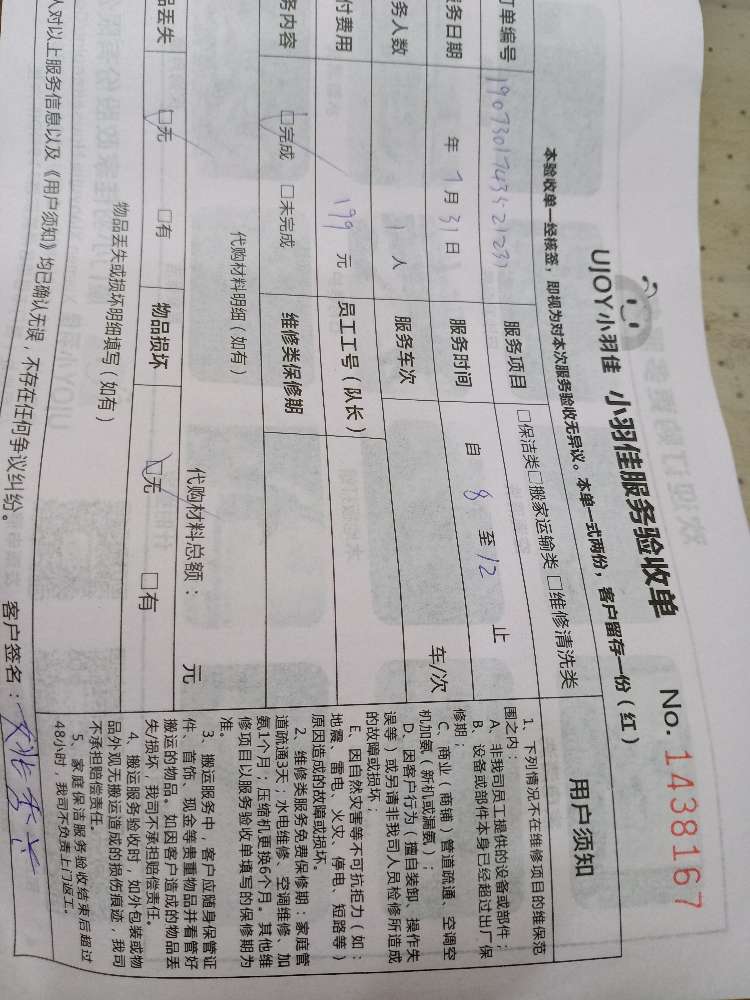 UJOY小羽佳 小羽佳服务验收单 No. 1438167
本验收单一经核签，即视为对本次服务验收无异议。本单一式两份，客户留存一份（红）
订单编号 服务项目 □保洁类□搬家运输类 □维修清洗类
服务日期 年 7 月 31 日 服务时间 自 8 至 12 止
务人数 1 人 服务车次 车/次
付费用 199 元 员工工号（队长）
务内容 □完成 □未完成 维修类保修期
代购材料明细（如有） 代购材料总额： 元
品丢失 □无 □有 物品损坏 □无 □有
物品丢失或损坏明细填写（如有）
人对以上服务信息以及《用户须知》均已确认无误，不存在任何争议纠纷。 客户签名：
用户须知
1、下列情况不在维修项目的维保范
围之内：
A、非我司员工提供的设备或部件；
B、设备或部件本身已经超过出厂保
修期；
C、商业（商铺）管道疏通、空调空
机加氨（新机或漏氨）；
D、因客户行为（擅自装卸、操作失
误等）或另请非我司人员检修所造成
的故障或损坏；
E、因自然灾害等不可抗拒力（如：
地震、雷电、火灾、停电、短路等）
原因造成的故障或损坏。
2、维修类服务免费保修期：家庭管
道疏通3天；水电维修、空调维修、加
氨1个月；压缩机更换6个月。其他维
修项目以服务验收单填写的保修期为
准。
3、搬运服务中，客户应随身保管证
件、首饰、现金等贵重物品并看管好
搬运的物品。如因客户造成的物品丢
失/损坏，我司不承担赔偿责任。
4、搬运服务验收时，如外包装或物
品外观无搬运造成的损伤痕迹，我司
不承担赔偿责任。
5、家庭保洁服务验收结束后超过
48小时，我司不负责上门返工。